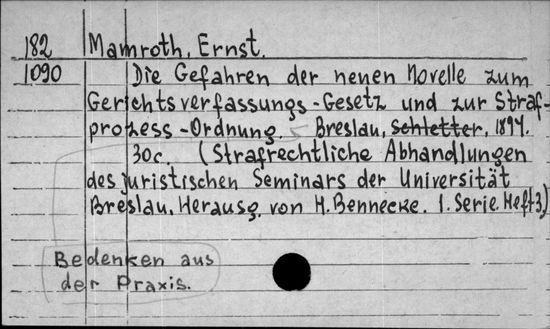 182 Mamroth, Ernst.
1090 Die Gefahren der neuen Novelle zum
Gerichtsverfassungs-Gesetz und zur Straf-
prozess-Ordnung. Breslau, Schletter, 1894.
30c. (Strafrechtliche Abhandlungen
des juristischen Seminars der Universität
Breslau. Herausg. von H. Bennecke. 1. Serie. Heft 3.)
Bedenken aus
der Praxis.